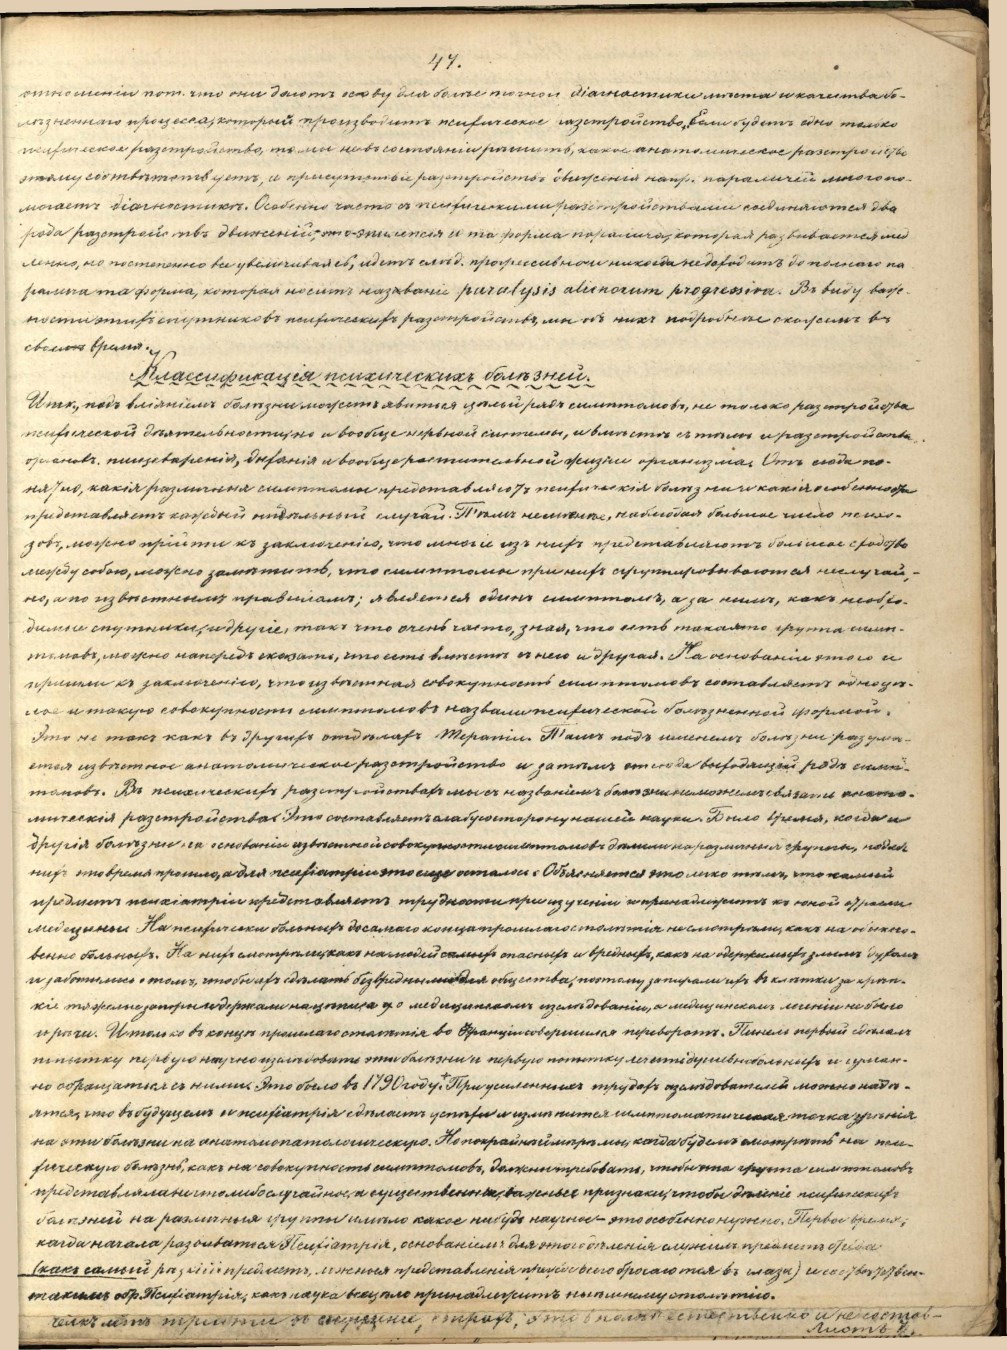 47.
отношеніи пот. что они даютъ основу для болѣе точной діагностики мѣста и качества бо-
лѣзненнаго процесса, который производитъ психическое разстройство. Если будетъ одно только
психическое разстройство, то мы не въ состояніи рѣшить, какое анатомическое разстройство
этому соотвѣтствуетъ, а присутствіе разстройствъ движенія напр. параличей много по-
могаетъ діагностикѣ. Особенно часто съ психическими разстройствами соединяются два
рода разстройствъ движеній, это эпилепсія и та форма паралича, которая развивается мед
ленно, но постепенно все увеличиваясь, идетъ слѣд. прогрессивно и никогда не доходитъ до полнаго па
ралича та форма, которая носитъ названіе paralysis alienorum progressiva. Въ виду важ-
ности этихъ спутниковъ психическихъ разстройствъ, мы объ нихъ подробнѣе скажемъ въ
свое время.
Классификація психическихъ болѣзней.
Итк., подъ вліяніемъ болѣзни можетъ явиться цѣлый рядъ симптомовъ, не только разстройства
психической дѣятельности, но и вообще нервной системы, и вмѣстѣ съ тѣмъ и разстройства
органовъ пищеваренія, дыханія и вообще растительной жизни организма. Отъ сюда по-
нятно, какія различныя симптомы представляютъ психическія болѣзни и какія особенности
представляетъ каждый отдѣльный случай. Тѣмъ не менѣе, наблюдая большое число психо-
зовъ, можно прійти къ заключенію, что многіе изъ нихъ представляютъ большое сходство
между собою, можно замѣтить, что симптомы при нихъ сгруппировываются не случай-
но, а по извѣстнымъ правиламъ; является одинъ симптомъ, а за нимъ, какъ необхо-
димые спутники, и другіе, такъ что очень часто, зная, что есть такая то группа симп-
томовъ, можно напередъ сказать, что есть вмѣстѣ съ нею и другая. На основаніи этого и
пришли къ заключенію, что извѣстная совокупность симптомовъ составляетъ одно цѣ-
лое и такую совокупность симптомовъ назвали психической болѣзненной формой.
Это не такъ какъ въ другихъ отдѣлахъ Терапіи. Тамъ подъ именемъ болѣзни разумѣ-
ется извѣстное анатомическое разстройство и затѣмъ отсюда выходящій рядъ симп-
томовъ. Въ психическихъ разстройствахъ мы съ названіемъ болѣзни не можемъ связать анато-
мическія разстройства. Это составляетъ слабую сторону нашей науки. Было время, когда и
другія болѣзни на основаніи извѣстной совокупности симптомовъ дѣлили на различныя группы, но для
нихъ это время прошло, а для психіатріи это еще осталось. Объясняется это легко тѣмъ, что самый
предметъ психіатріи представляетъ трудности при изученіи и принадлежитъ къ юной отрасли
медецины. На психически больныхъ до самаго конца прошлаго столѣтія не смотрѣли, какъ на обыкно-
венно больныхъ. На нихъ смотрѣли, какъ на людей самыхъ опасныхъ и вредныхъ, какъ на одержимыхъ злымъ духомъ
и заботились о томъ, чтобы ихъ сдѣлать безвредными для общества; поэтому запирали ихъ въ клѣтки за крѣп-
кіе тяжелые запоры и держали на цѣпи, а о медицинскомъ изслѣдованіи, о медицинскомъ леченіи не было
и рѣчи. И только въ концѣ прошлаго столѣтія во Франціи совершился переворотъ. Пинель первый сдѣлалъ
попытку первую научно изслѣдовать эти болѣзни и первую попытку лечить душевнобольныхъ и гуман-
но обращаться съ ними. Это было въ 1790 году. При усиленныхъ трудахъ изслѣдователей можно надѣ-
яться, что въ будущемъ и психіатрія сдѣлаетъ успѣхи и измѣнится симптоматическая точка зрѣнія
на эти болѣзни на анатомопатологическую. Но по крайней мѣрѣ мы, когда будемъ смотрѣть на пси-
хическую болѣзнь, какъ на совокупность симптомовъ, должны требовать, чтобы эта группа симптомовъ
представляла не что либо случайное, а существенные, важные признаки, чтобы дѣленіе психическихъ
болѣзней на различныя группы имѣло какое нибудь научное – это особенно нужно. Первое время,
когда начала развиваться Психіатрія, основаніемъ для этого дѣленія служилъ предметъ бреда
(какъ самый предметъ, ложныя представленія прежде всего бросаются въ глаза) и соотвѣтствен-
такимъ обр. Психіатрія, какъ наука всецѣло принадлежитъ нынѣшнему столѣтію.
это вполнѣ естественно и не состав-
Листъ